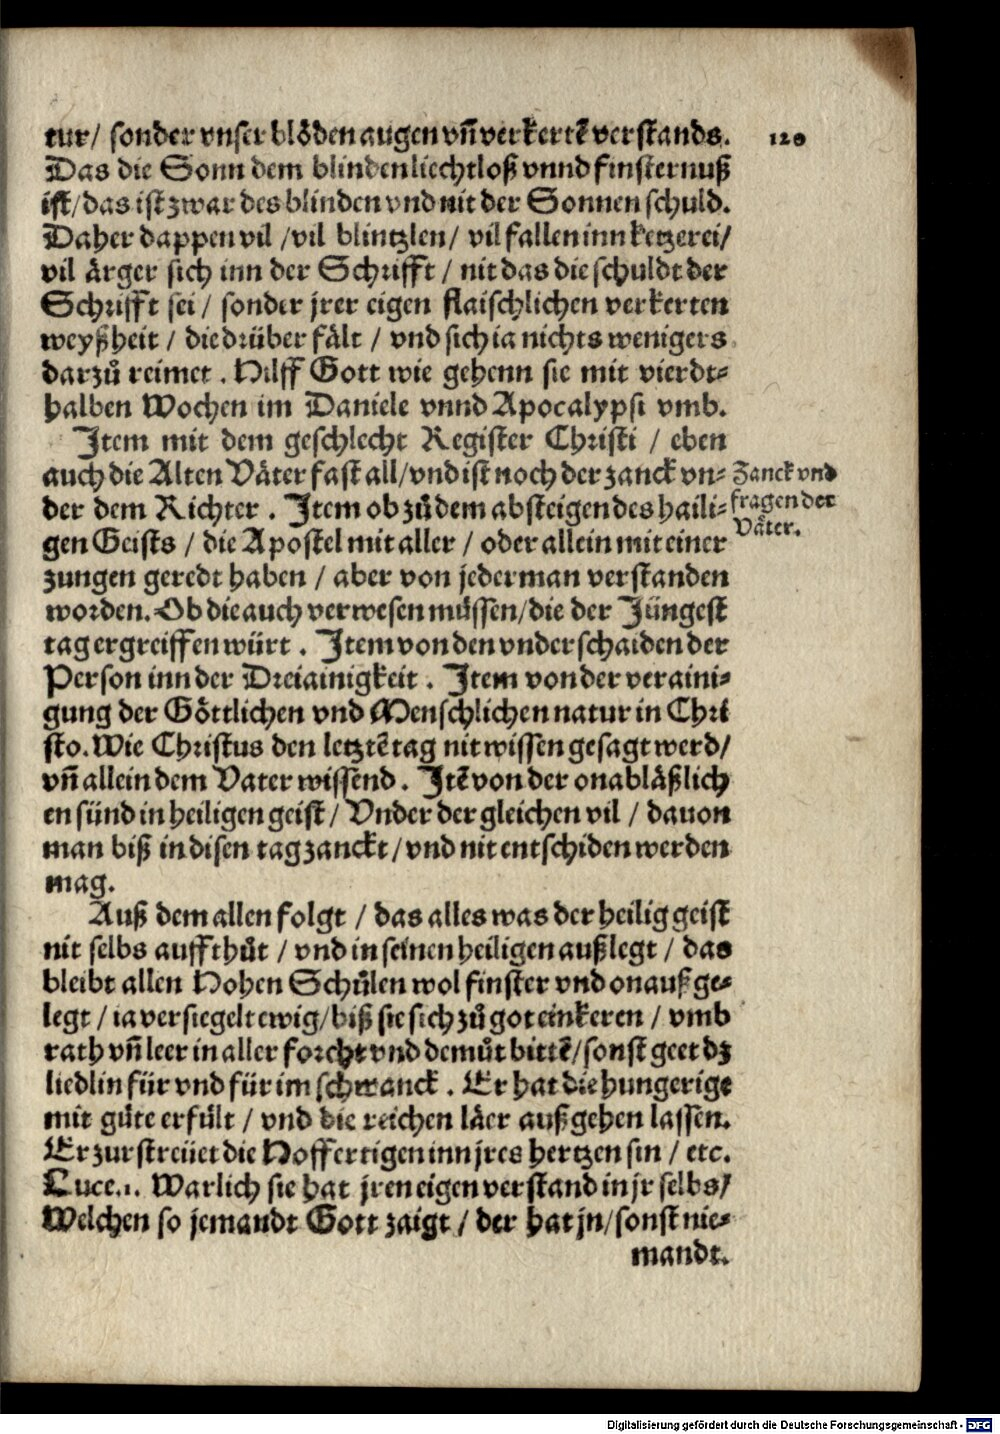 tur/ sonder vnser blöden augen vñ verkertẽ verstands.
120
Das die Sonn dem blinden liechtloß vnnd finsternuß
ist/ das ist zwar des blinden vnd nit der Sonnen schuld.
Daher dappen vil / vil blintzlen / vil fallen inn ketzerei/
vil ärger sich inn der Schrifft / nit das die schuldt der
Schrifft sei / sonder jrer eigen flaischlichen verkerten
weyßheit / die drüber fält / vnd sich ia nichts wenigers
darzů reimet. Hilff Gott wie gehenn sie mit vierdt-
halben Wochen im Daniele vnnd Apocalypsi vmb.
Item mit dem geschlecht Register Christi / eben
auch die Alten Väter fast all/ vnd ist noch der zanck vn-
der dem Richter. Item ob zů dem absteigen des haili-
gen Geists / die Apostel mit aller / oder allein mit einer
zungen geredt haben / aber von jederman verstanden
worden. Ob die auch verwesen müssen/ die der Jüngest
tag ergreiffen würt. Item von den vnderschaiden der
Person inn der Dreiainigkeit. Item von der veraini-
gung der Göttlichen vnd Menschlichen natur in Chri
sto. Wie Christus den letztẽ tag nit wissen gesagt werd/
vñ allein dem Vater wissend. Itẽ von der onabläßlich
en sünd in heiligen geist / Vnder der gleichen vil / dauon
man biß in disen tag zanckt / vnd nit entschiden werden
mag.
Zanck vnd
fragen der
Väter.
Auß dem allen folgt / das alles was der heilig geist
nit selbs auffthůt / vnd in seinen heiligen außlegt / das
bleibt allen Hohen Schůlen wol finster vnd onaußge-
legt / ia versiegelt ewig/ biß sie sich zů got einkeren / vmb
rath vñ leer in aller forcht vnd demůt bittẽ/ sonst geet dz
liedlin für vnd für im schwanck. Er hat die hungerige
mit güte erfült / vnd die reichen läer außgehen lassen.
Er zurstreüet die Hoffertigen inn jres hertzen sin / etc.
Luce.1. Warlich sie hat jren eigen verstand in jr selbs/
Welchen so jemandt Gott zaigt / der hat jn/ sonst nie-
mandt.
Digitalisierung gefördert durch die Deutsche Forschungsgemeinschaft - DFG